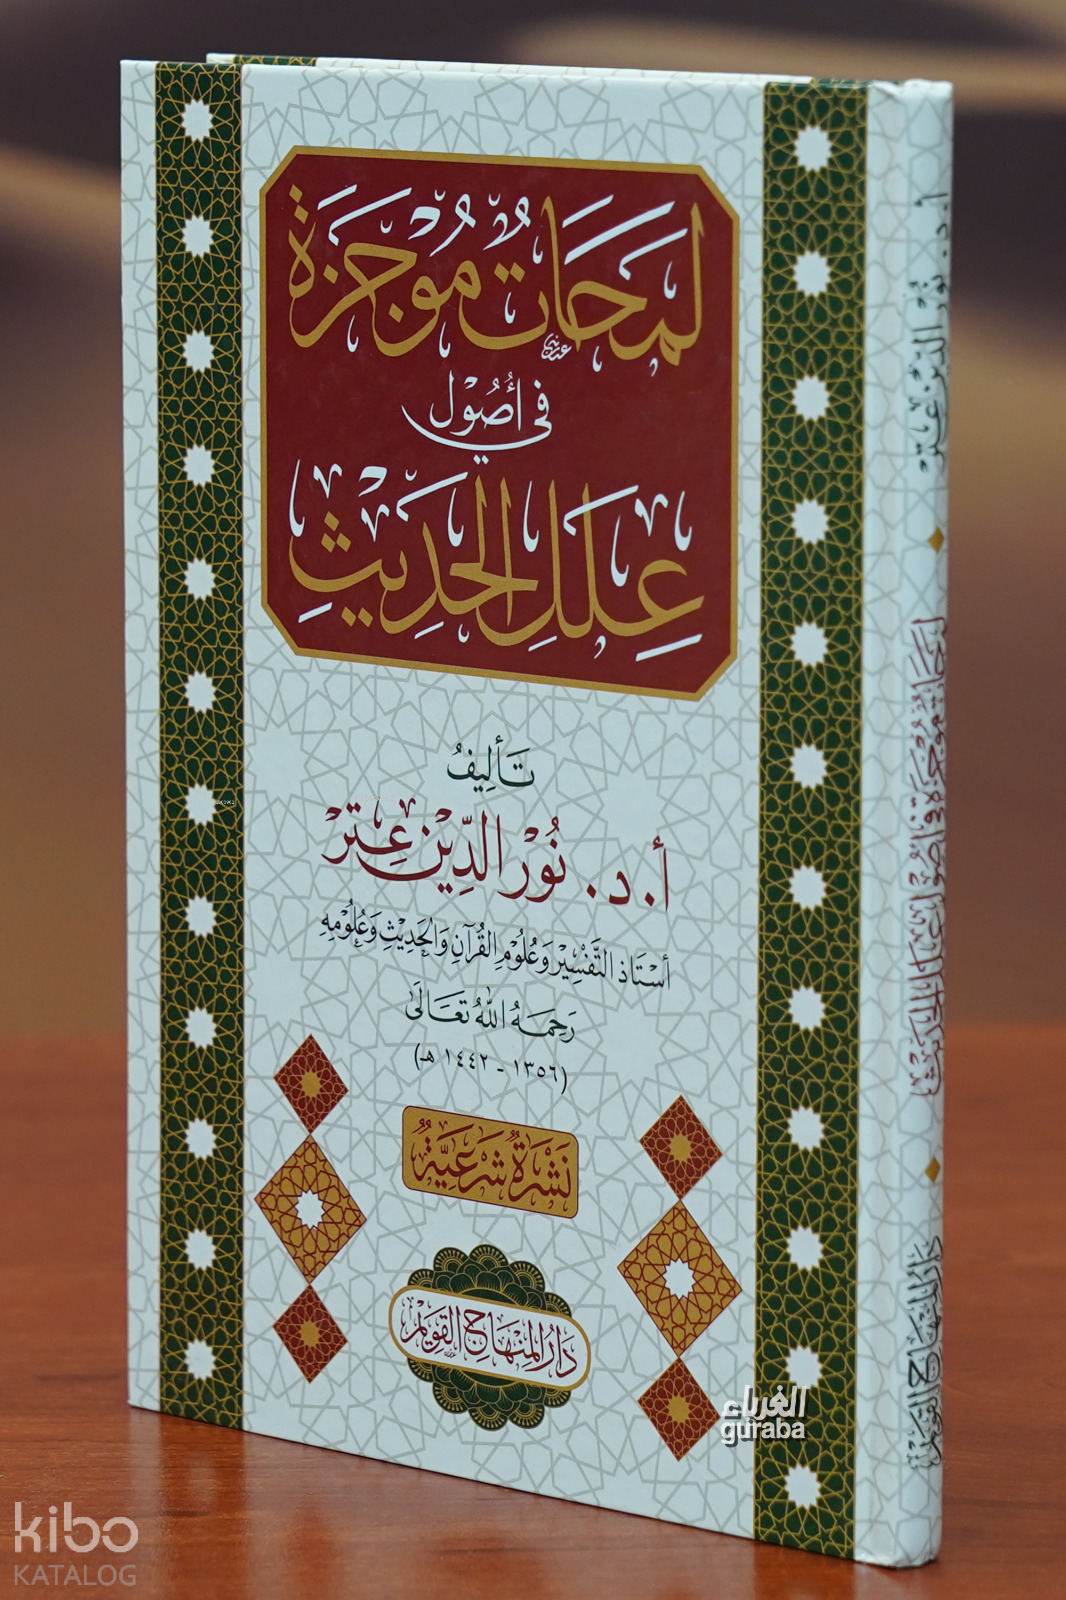 لَمَحَاتٌ مُوْجَزَة
في أُصُوْل
عِلَلِ الحَدِيْثِ
تَأليفُ
أ. د. نُوْر الدِّيْن عِتْر
أسْتَاذ التَّفْسِيْر وَعُلُوْمِ القُرْآنِ وَالحَدِيْثِ وَعُلُوْمِهِ
رَحِمَهُ اللهُ تَعَالَى
(١٣٥٦ - ١٤٤٢ هـ)
نَشْرَةٌ شَرْعِيَّةٌ
دَارُ المِنْهَاجِ القَوِيْمِ
أ. د. نُوْر الدِّيْن عِتْر
دَارُ المِنْهَاجِ القَوِيْمِ
الغرباء
guraba
kibo
KATALOG